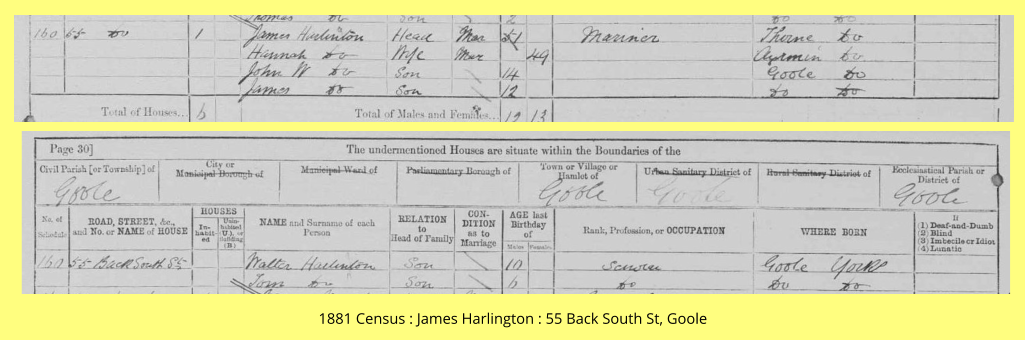 Thomas do Son 2 do do
160 55 do 1 James Harlinton Head Mar 51 Mariner Thorne do
Hannah do Wife Mar 49 Airmin do
John W do Son 14 Goole do
James do Son 12 do do
Total of Houses... 6 Total of Males and Females... 12 13
Page 30] The undermentioned Houses are situate within the Boundaries of the
Civil Parish [or Township] of City or Municipal Borough of Municipal Ward of Parliamentary Borough of Town or Village or Hamlet of Urban Sanitary District of Rural Sanitary District of Ecclesiastical Parish or District of
Goole Goole Goole Goole
No. of Schedule ROAD, STREET, &c., and No. or NAME of HOUSE HOUSES In-habit-ed Unin-habited (U.), or Building (B.) NAME and Surname of each Person RELATION to Head of Family CON-DITION as to Marriage AGE last Birthday of Males Females Rank, Profession, or OCCUPATION WHERE BORN If (1) Deaf-and-Dumb (2) Blind (3) Imbecile or Idiot (4) Lunatic
160 55 Back South St Walter Harlinton Son 10 Goole Yorks
Tom do Son 6 do do do
1881 Census : James Harlington : 55 Back South St, Goole